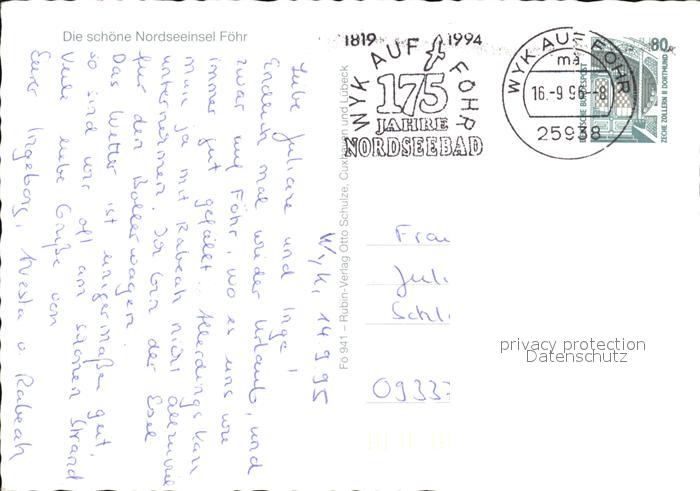 Die schöne Nordseeinsel Föhr
1819 1994
WYK AUF FÖHR
175
JAHRE
NORDSEEBAD
WYK AUF FÖHR
ma
16.-9.96--8
25938
80
DEUTSCHE BUNDESPOST
ZECHE ZOLLERN II DORTMUND
Fö 941 – Rubin-Verlag Otto Schulze, Cuxhaven und Lübeck
Wyk, 14.9.95
Liebe Juliane und Inge!
Endlich mal wieder Urlaub, und
zwar auf Föhr, wo es uns wie
immer gut gefällt. Allerdings kann
man ja mit Rabeah nicht allzuviel
unternehmen. Ich bin der Esel
für den Bollerwagen.
Das Wetter ist einigermaßen gut,
so sind wir oft am schönen Strand
Viele liebe Grüße von
Eurer Ingeborg, Nvesta u. Rabeah
Frau
Juli
Schl
09337
privacy protection
Datenschutz